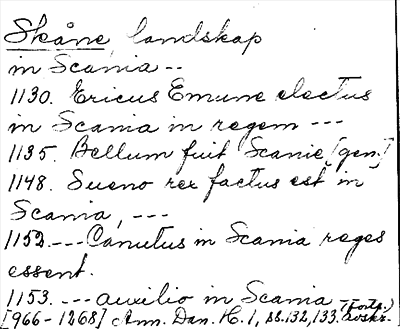 Skåne, landskap
in Scania --
1130. Ericus Emune electus
in Scania in regem ---
1135. Bellum fuit Scanie [gen.]
1148. Sueno rex factus est in
Scania, ---
1152. --- Canutus in Scania reges
essent.
1153. --- auxilio in Scania - (forts.)
[966-1268] Ann. Dan. H. 1, ss. 132, 133. avskr.